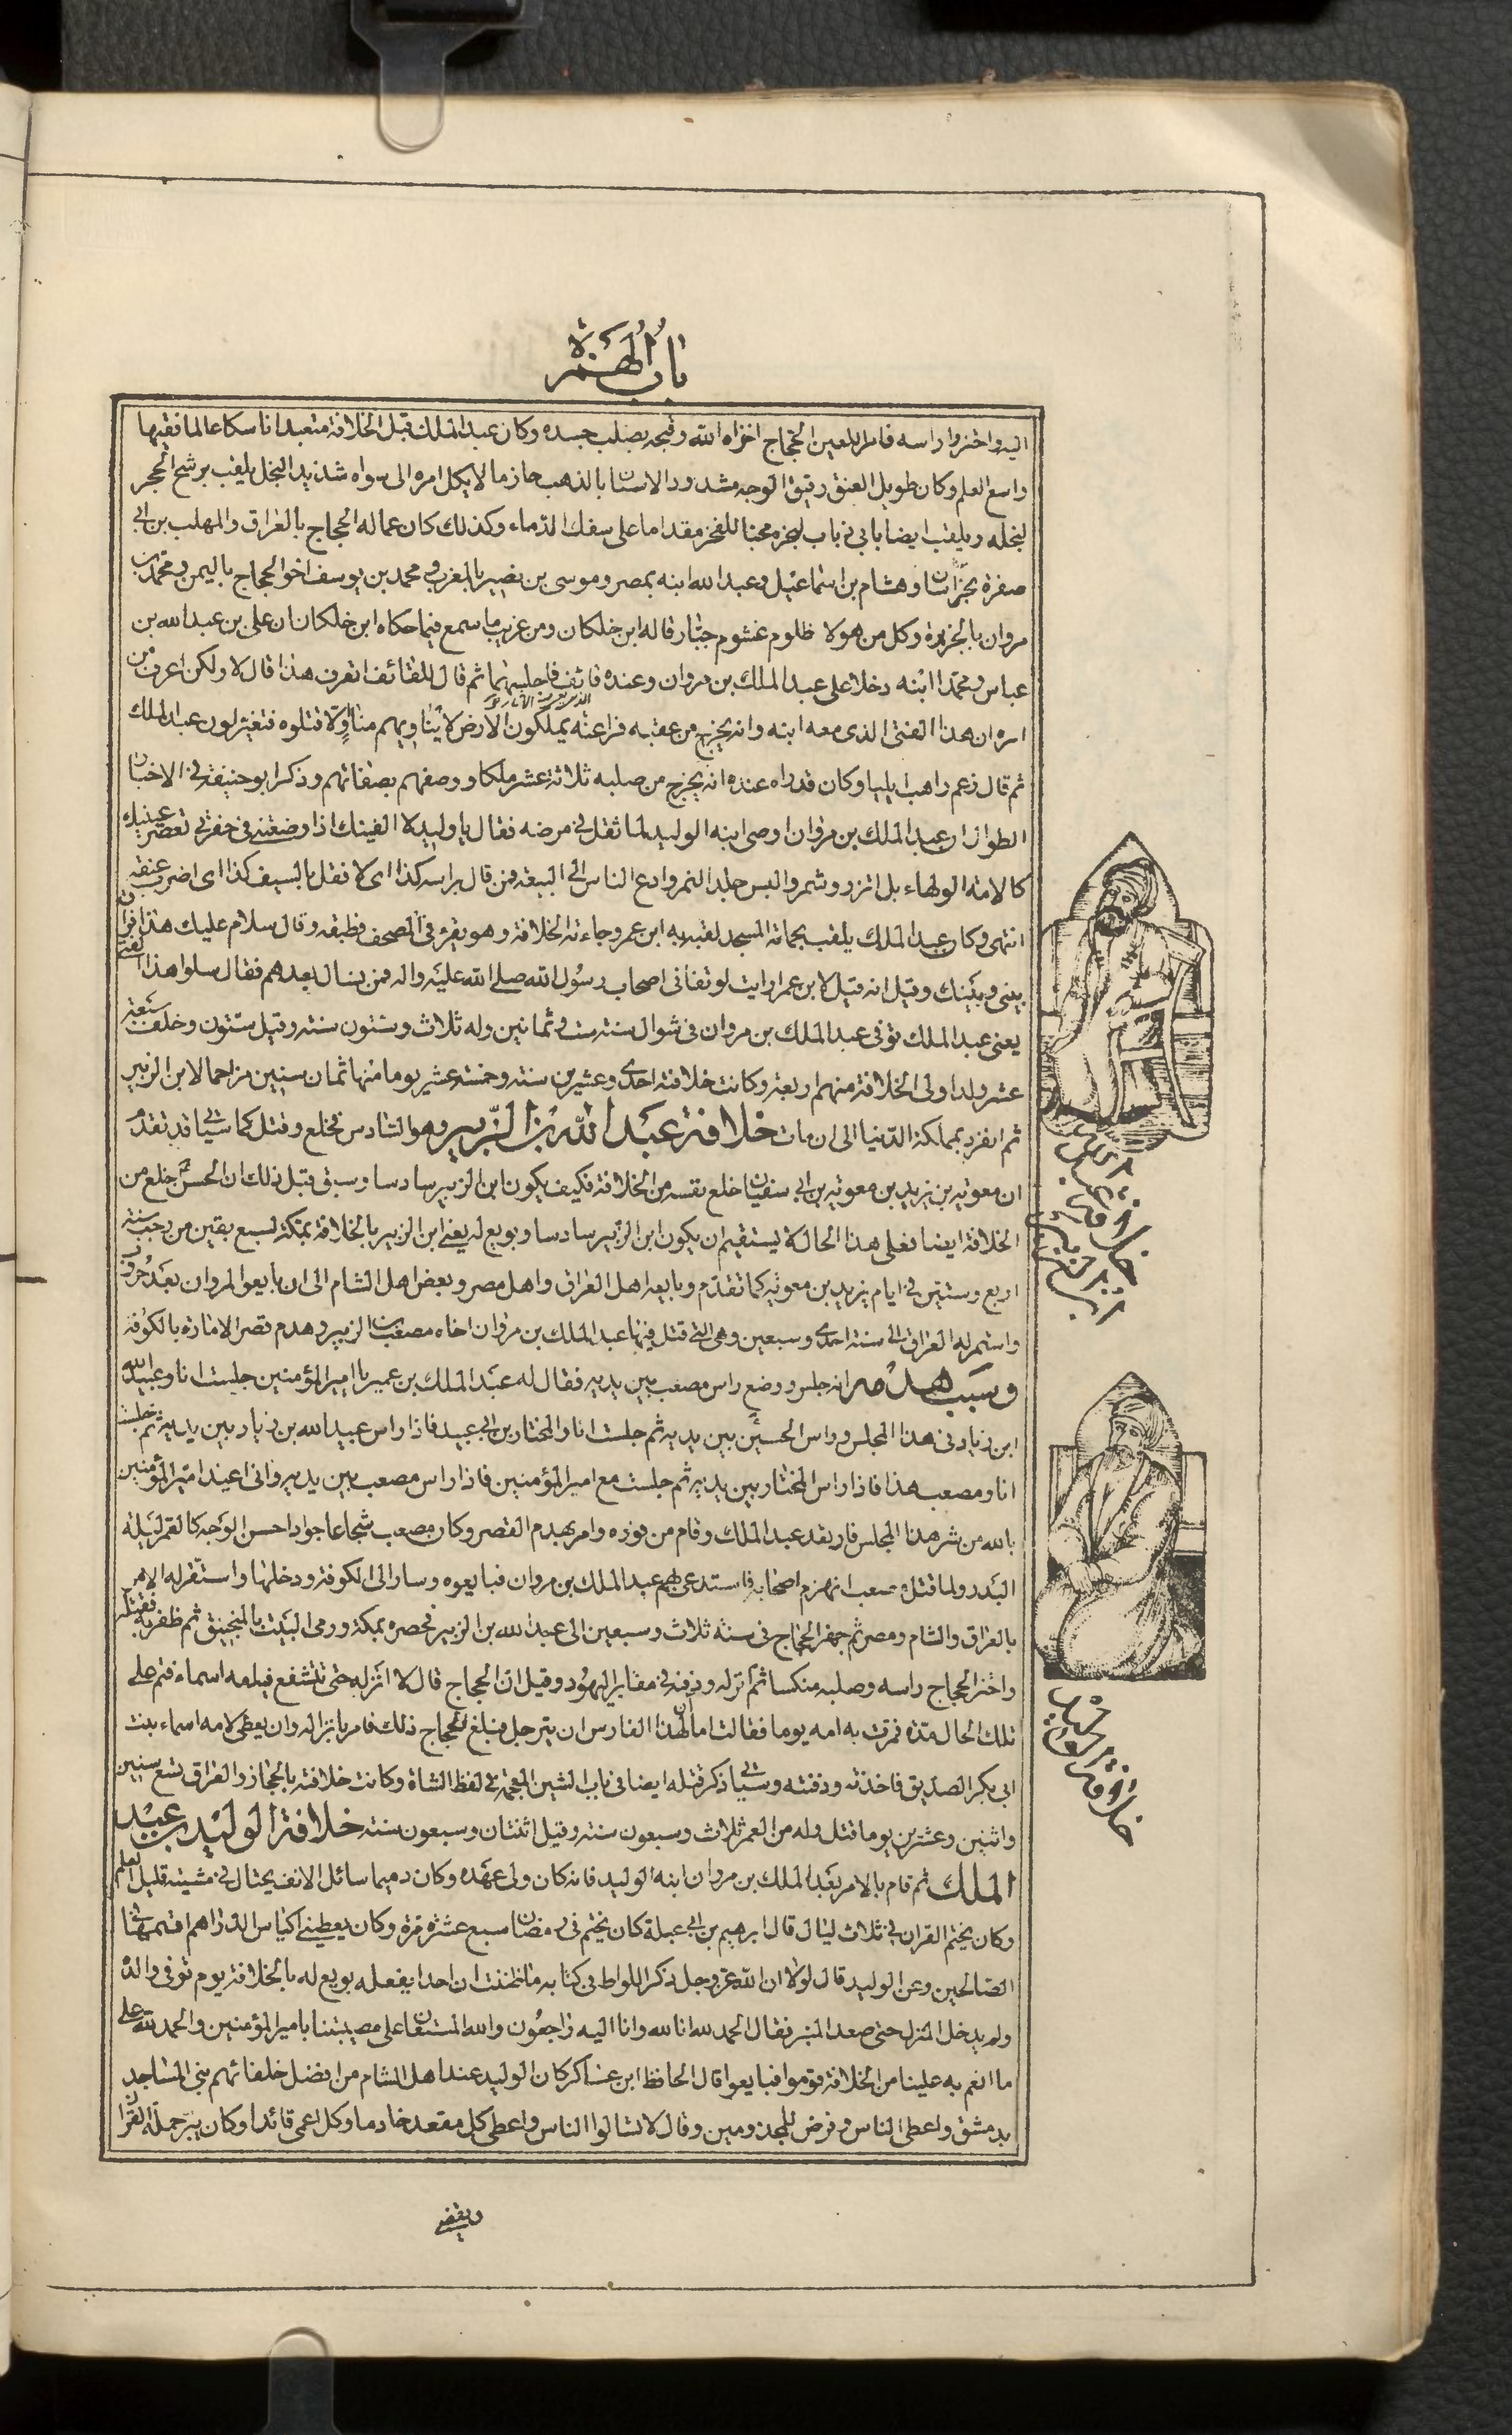 باب الهمزة
اليه واختزوا راسه فامر اللعين الحجاج اخزاه الله وقبحه بصلب جسده وكان عبد الملك قبل الخلافة متعبدا ناسكا عالما فقيها
واسع العلم وكان طويل العنق رقيق الوجه مشدود الاسنان بالذهب حازما لا يكل امره الى سواه شديد البخل يلقب برشح الحجر
لبخله ويلقب ايضا بابى ذباب لبخره محبا للفخر مقداما على سفك الدماء وكذلك كان عماله الحجاج بالعراق والمهلب بن ابى
صفرة بخراسان وهشام بن اسماعيل وعبد الله ابنه بمصر وموسى بن نصير بالمغرب ومحمد بن يوسف اخو الحجاج باليمن ومحمد بن
مروان بالجزيرة وكل من هولا ظلوم غشوم جبار قاله ابن خلكان ومن غريب ما سمع فيما حكاه ابن خلكان ان على بن عبد الله بن
عباس ومحمدا ابنه دخلا على عبد الملك بن مروان وعنده قائف فاجلسهما ثم قال للقائف اتعرف هذا قال لا ولكن اعرف من
امره ان هذا الفتى الذى معه ابنه وانه يخرج من عقبه فراعنة يملكون الارض لا يناويهم مناو الا قتلوه فتغير لون عبد الملك
ثم قال زعم راهب ايليا وكان قد راه عنده انه يخرج من صلبه ثلاثة عشر ملكا ووصفهم بصفاتهم وذكر ابو حنيفة فى الاخبار
الطوال ان عبد الملك بن مروان اوصى ابنه الوليد لما ثقل فى مرضه فقال يا وليد لا الفينك اذا وضعتنى فى حفرتى تعصر عينيك
كالامة الولهاء بل اتزر وشمر والبس جلد النمر وادع الناس الى البيعة فمن قال براسه كذا اى لا فقل بالسيف كذا اى اضرب عنقه
انتهى وكان عبد الملك يلقب بحمامة المسجد لقبه به ابن عمر وجاءته الخلافة وهو يقرء فى المصحف فطبقه وقال سلام عليك هذا فراق
بينى وبينك وقيل انه قيل لابن عمر ارايت لو تفانى اصحاب رسول الله صلى الله عليه واله فمن نسال بعدهم فقال سلوا هذا الفتى
يعنى عبد الملك توفى عبد الملك بن مروان فى شوال سنة ست وثمانين وله ثلاث وستون سنة وقيل ستون وخلف سبعة
عشر ولدا ولى الخلافة منهم اربعة وكانت خلافته احدى وعشرين سنة وخمسة عشر يوما منها ثمان سنين مزاحما لابن الزبير
ثم انفرد بمملكة الدنيا الى ان مات خلافة عبد الله بن الزبير وهو السادس فخلع وقتل كما سياتى قد تقدم
ان معوية بن يزيد بن معوية بن ابى سفيان خلع نفسه من الخلافة فكيف يكون ابن الزبير سادسا وسبق قبل ذلك ان الحسن خلع من
الخلافة ايضا فعلى هذا الحال لا يستقيم ان يكون ابن الزبير سادسا وبويع له يعنى ابن الزبير بالخلافة بمكة لسبع بقين من رجب سنة
اربع وستين فى ايام يزيد بن معوية كما تقدم وبايعه اهل العراق واهل مصر وبعض اهل الشام الى ان بايعوا لمروان بعد حروب
واستمر له العراق الى سنة احدى وسبعين وهى التى قتل فيها عبد الملك بن مروان اخاه مصعب بن الزبير وهدم قصر الامارة بالكوفة
وسبب هدمه انه جلس ووضع راس مصعب بين يديه فقال له عبد الملك بن عمير يا امير المؤمنين جلست انا وعبيد الله
ابن زياد فى هذا المجلس وراس الحسين بين يديه ثم جلست انا والمختار بن ابى عبيد فاذا راس عبيد الله بن زياد بين يديه ثم جلست
انا ومصعب هذا فاذا راس المختار بين يديه ثم جلست مع امير المؤمنين فاذا راس مصعب بين يديه وانى اعيذ امير المؤمنين
بالله من شر هذا المجلس فارتعد عبد الملك وقام من فوره وامر بهدم القصر وكان مصعب شجاعا جوادا حسن الوجه كالقمر ليلة
البدر ولما قتل مصعب انهزم اصحابه فاستدعى بهم عبد الملك بن مروان فبايعوه وسار الى الكوفة ودخلها واستقر له الامر
بالعراق والشام ومصر ثم جهز الحجاج فى سنة ثلاث وسبعين الى عبد الله بن الزبير فحصره بمكة ورمى البيت بالمنجنيق ثم ظفر به فقتله
واختز الحجاج راسه وصلبه منكسا ثم انزله ودفنه فى مقابر اليهود وقيل ان الحجاج قال لا انزله حتى تتشفع فيه امه اسماء فتم على
تلك الحال مدة فمرت به امه يوما فقالت اما ان لهذا الفارس ان يترجل فبلغ الحجاج ذلك فامر بانزاله وان يعطى لامه اسماء بنت
ابى بكر الصديق فاخذته ودفنته وسياتى ذكر قتله ايضا فى باب الشين المعجمة فى لفظ الشاة وكانت خلافته بالحجاز والعراق تسع سنين
واثنين وعشرين يوما قتل وله من العمر ثلاث وسبعون سنة وقيل اثنتان وسبعون سنة خلافة الوليد بن عبد
الملك ثم قام بالامر بعد عبد الملك بن مروان ابنه الوليد فانه كان ولى عهده وكان دميما سائل الانف يختال فى مشيته قليل العلم
وكان يختم القران فى ثلاث ليال قال ابرهيم بن ابى عبلة كان يختم فى رمضان سبع عشرة مرة وكان يعطينى اكياس الدراهم اقسمها فى
الصالحين وعن الوليد قال لولا ان الله عز وجل ذكر اللواط فى كتابه ما ظننت ان احدا يفعله بويع له بالخلافة يوم توفى والده
ولم يدخل المنزل حتى صعد المنبر فقال الحمد لله انا لله وانا اليه راجعون والله المستعان على مصيبتنا بامير المؤمنين والحمد لله على
ما انعم به علينا من الخلافة قوموا فبايعوا قال الحافظ ابن عساكر كان الوليد عند اهل الشام من افضل خلفائهم بنى المساجد
بدمشق واعطى الناس وفرض للمجذومين وقال لا تسالوا الناس واعطى كل مقعد خادما وكل اعمى قائدا وكان يبر حملة القران
ويقضى
خلافة عبد الله
ابن الزبير
خلافة الوليد